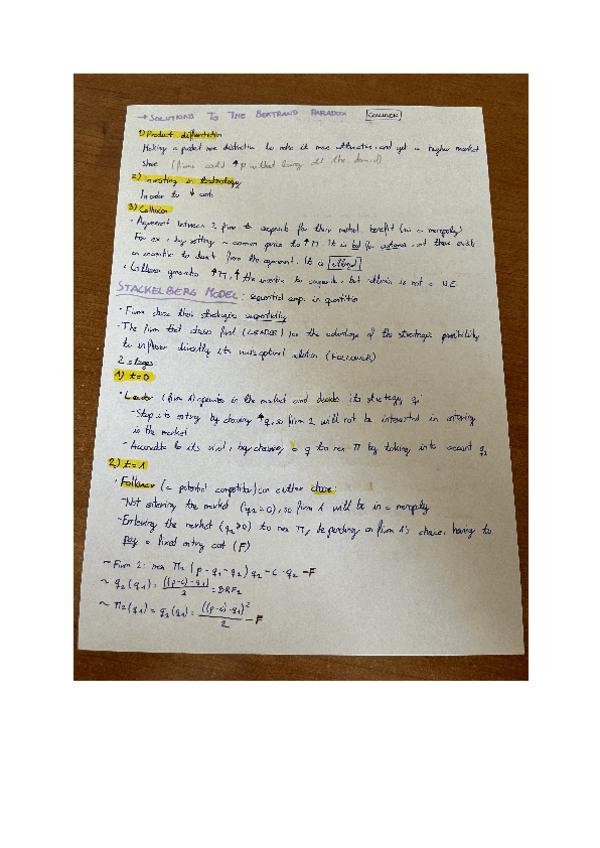 → SOLUTIONS TO THE BERTRAND PARADOX
1) Product differentiation
Making a product more distinctive to make it more attractive and get a higher market
share (firms could ↑p without losing all the demand)
2) Investing in technology
In order to ↓ costs
3) Collusion
• Agreement between 2 firms to cooperate for their mutual benefit (as a monopoly)
For ex: by setting a common price to ↑π. It is bad for and there exists
an incentive to deviate from the agreement. It is illegal
• Collusion generates ↑π, ↑ the incentive to cooperate, but collusion is not a N.E.
STACKELBERG MODEL: sequential comp. in quantities
• Firms choose their strategies sequentially
• The firm that chooses first (LEADER) has the advantage of the strategic possibility
to influence directly its rival's optimal solution (FOLLOWER)
2 stages:
1) t=0
• Leader (firm 1) operates in the market and decides its strategy q1
- Stop its entry by choosing ↑q, so firm 2 will not be interested in entering
in the market
- Accomodate to its rival, by choosing a q to max π by taking into account q2
2) t=1
• Follower (a potential competitor) can either choose:
- Not entering the market (q2=0), so firm 1 will be in a monopoly
- Entering the market (q2>0) to max π, depending on firm 1's choice, having to
pay a fixed entry cost (F)
~ Firm 2: max π2 (p-q1-q2) q2 - c·q2 -F
~ q2(q1) = ((p-c)-q1)/2 = BRF2
~ π2(q1) = q2(q1) = ((p-c)-q1)²/2 - F